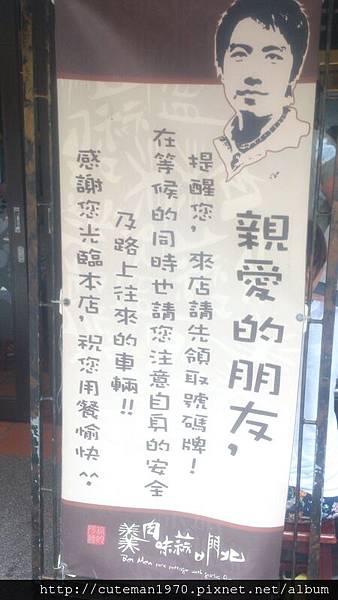 親愛的朋友,
提醒您,來店請先領取號碼牌!
在等候的同時也請您注意自身的安全
及路上往來的車輛!!
感謝您光臨本店,祝您用餐愉快^^
北門蒜味肉羹
http://cuteman1970.pixnet.net/album